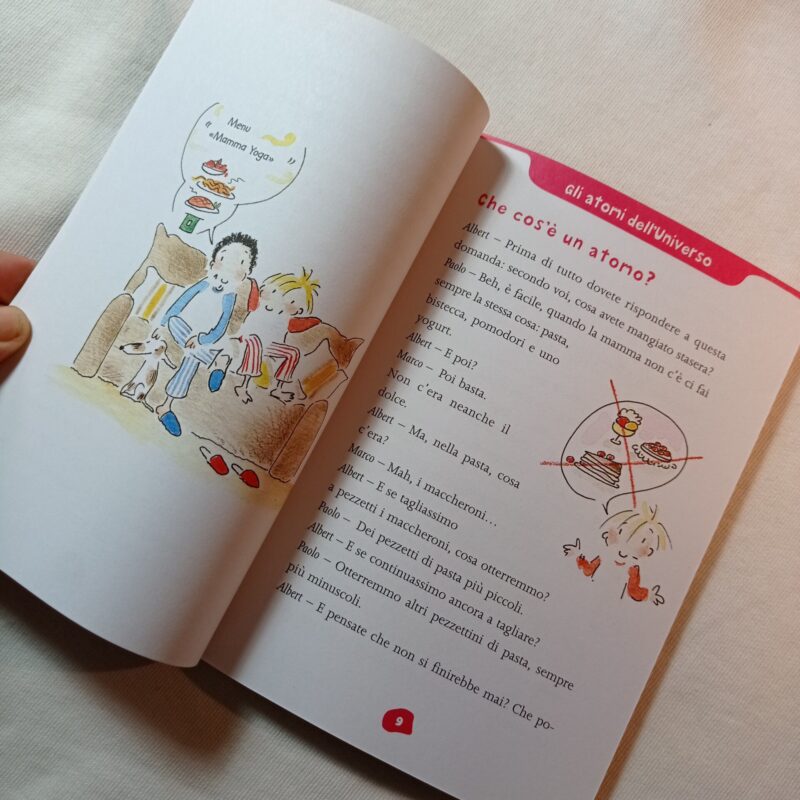 Menu
«Mamma Yoga»
Gli atomi dell'Universo
Che cos'è un atomo?
Albert – Prima di tutto dovete rispondere a questa
domanda: secondo voi, cosa avete mangiato stasera?
Paolo – Beh, è facile, quando la mamma non c'è ci fai
sempre la stessa cosa: pasta,
bistecca, pomodori e uno
yogurt.
Albert – E poi?
Marco – Poi basta.
Non c'era neanche il
dolce.
Albert – Ma, nella pasta, cosa
c'era?
Marco – Mah, i maccheroni...
Albert – E se tagliassimo
a pezzetti i maccheroni, cosa otterremmo?
Paolo – Dei pezzetti di pasta più piccoli.
Albert – E se continuassimo ancora a tagliare?
Paolo – Otterremmo altri pezzettini di pasta, sempre
più minuscoli.
Albert – E pensate che non si finirebbe mai? Che po-
9